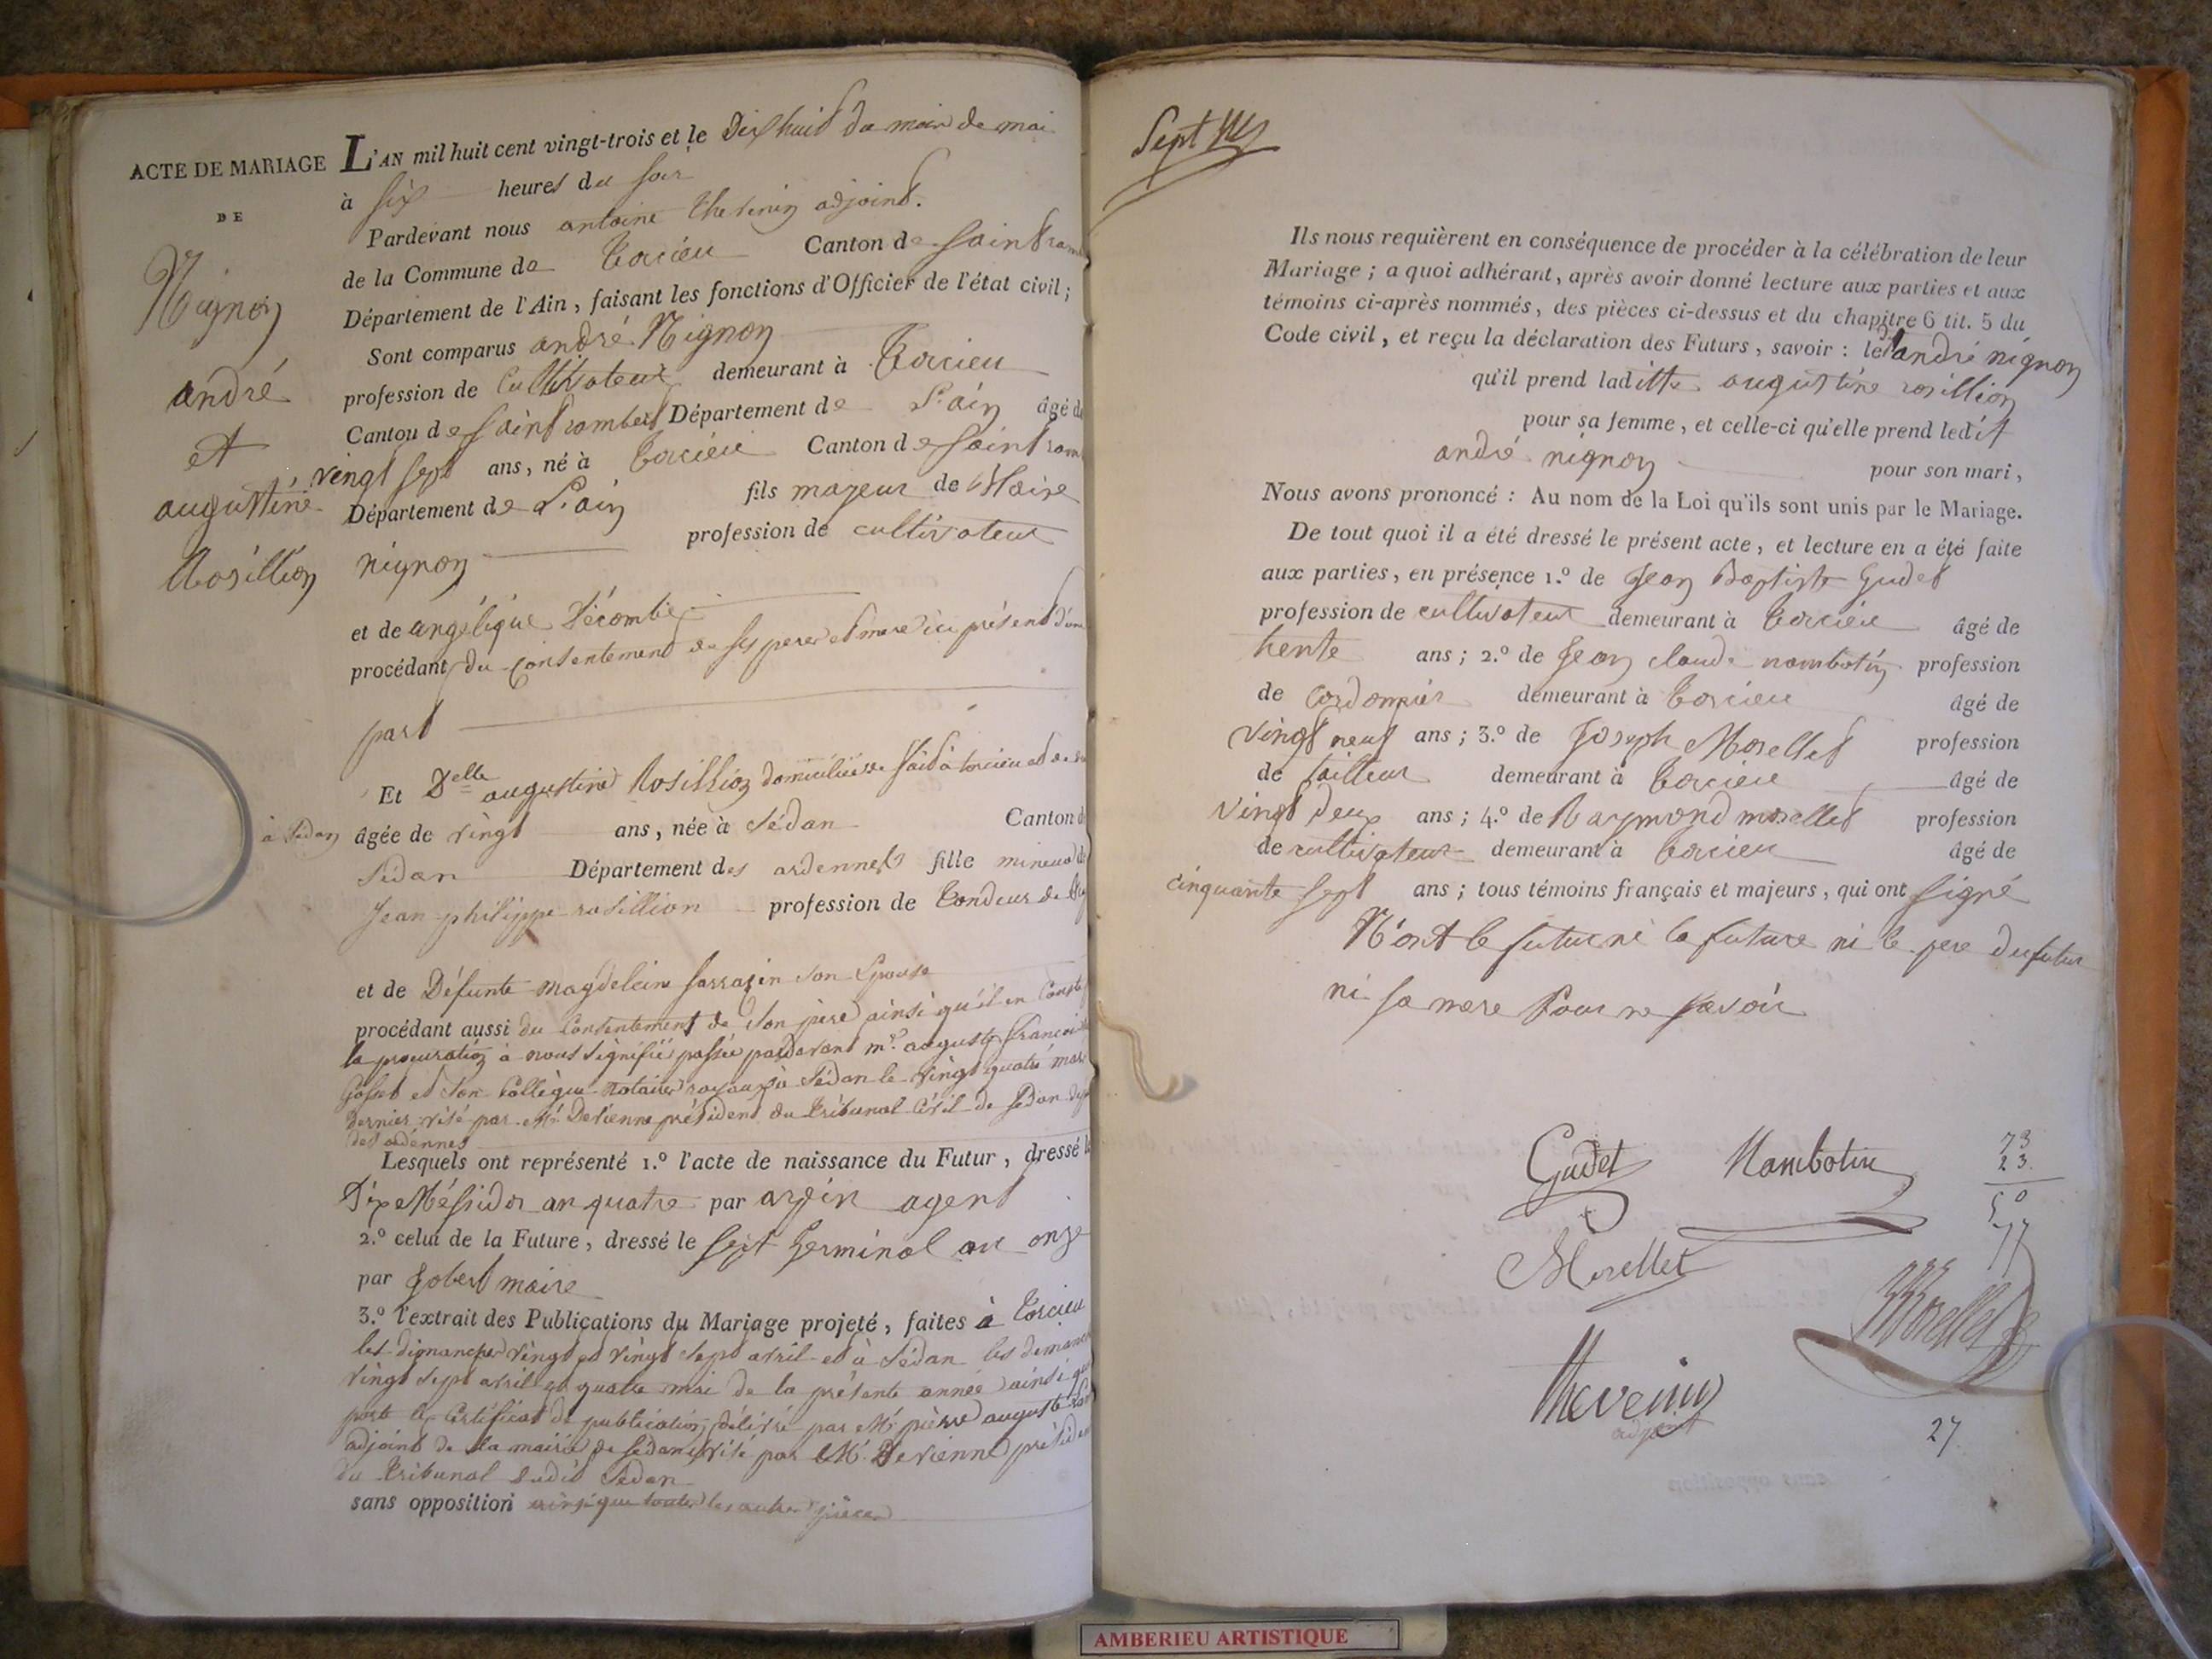 ACTE DE MARIAGE
DE
Nignon
andré
et
augustine
Rosillion
L'AN mil huit cent vingt-trois et le Dix huit du mois de mai
à six heures du soir
Pardevant nous antoine thevenin adjoint.
de la Commune de torcieu Canton de saint ram
Département de l'Ain, faisant les fonctions d'Officier de l'état civil;
Sont comparus andré Nignon
profession de Cultivateur demeurant à torcieu
Canton de saint rambert Département de L'ain âgé de
vingt sept ans, né à torcieu Canton de saint ram
Département de L'ain fils majeur de Claire
nignon profession de cultivateur
et de angélique Décombe
procédant du consentement de ses pere et mere ici présent d'une
part
Et Delle augustine Rosillion domiciliée de fait à torcieu et de
à Sédan
âgée de vingt ans, née à Sédan Canton de
Sédan Département des ardennes fille mineure de
Jean philippe rosillion profession de tondeur de
et de Défunte magdeleine sarrazin son Epouse
procédant aussi du Consentement de son pere ainsi qu'il en Conste
la procuration à nous signifiée passée pardevant mr. auguste francoi
Gosset et son Collègue Notaires royaux à Sédan le vingt quatre mars
dernier visé par Mr. Devienne président du tribunal Civil de Sedan
des ardennes
Lesquels ont représenté 1.º l'acte de naissance du Futur, dressé le
Dix Messidor an quatre par arpin agent
2.º celui de la Future, dressé le sept Germinal an onze
par Gobert maire
3.º l'extrait des Publications du Mariage projeté, faites à torcieu
les dimanches vingt et vingt sept avril et à Sédan les dimanch
vingt sept avril et quatre mai de la présente année ainsi que
porte le Certificat de publication délivré par Mr pierre auguste
adjoint de la mairie de Sédan visé par Mr. Devienne présiden
du tribunal dudit Sédan
sans opposition ainsi que toutes les autres pièces
Sept
Ils nous requièrent en conséquence de procéder à la célébration de leur
Mariage; a quoi adhérant, après avoir donné lecture aux parties et aux
témoins ci-après nommés, des pièces ci-dessus et du chapitre 6 tit. 5 du
Code civil, et reçu la déclaration des Futurs, savoir: ledt andré nignon
qu'il prend laditte augustine rosillion
pour sa femme, et celle-ci qu'elle prend ledit
andré nignon pour son mari,
Nous avons prononcé: Au nom de la Loi qu'ils sont unis par le Mariage.
De tout quoi il a été dressé le présent acte, et lecture en a été faite
aux parties, en présence 1.º de Jean Baptiste Gudet
profession de cultivateur demeurant à torcieu âgé de
trente ans; 2.º de Jean claude nambotin profession
de Cordonnier demeurant à torcieu âgé de
vingt neuf ans; 3.º de Joseph Morellet profession
de tailleur demeurant à torcieu âgé de
vingt deux ans; 4.º de Raymond morellet profession
de cultivateur demeurant à torcieu âgé de
cinquante sept ans; tous témoins français et majeurs, qui ont signé
N'ont le futur ni la future ni le pere du futur
ni sa mere Pour ne savoir
Gudet Nambotin
73
23
50
77
Morellet
Morellet
Thevenin
adjoint
27
AMBERIEU ARTISTIQUE